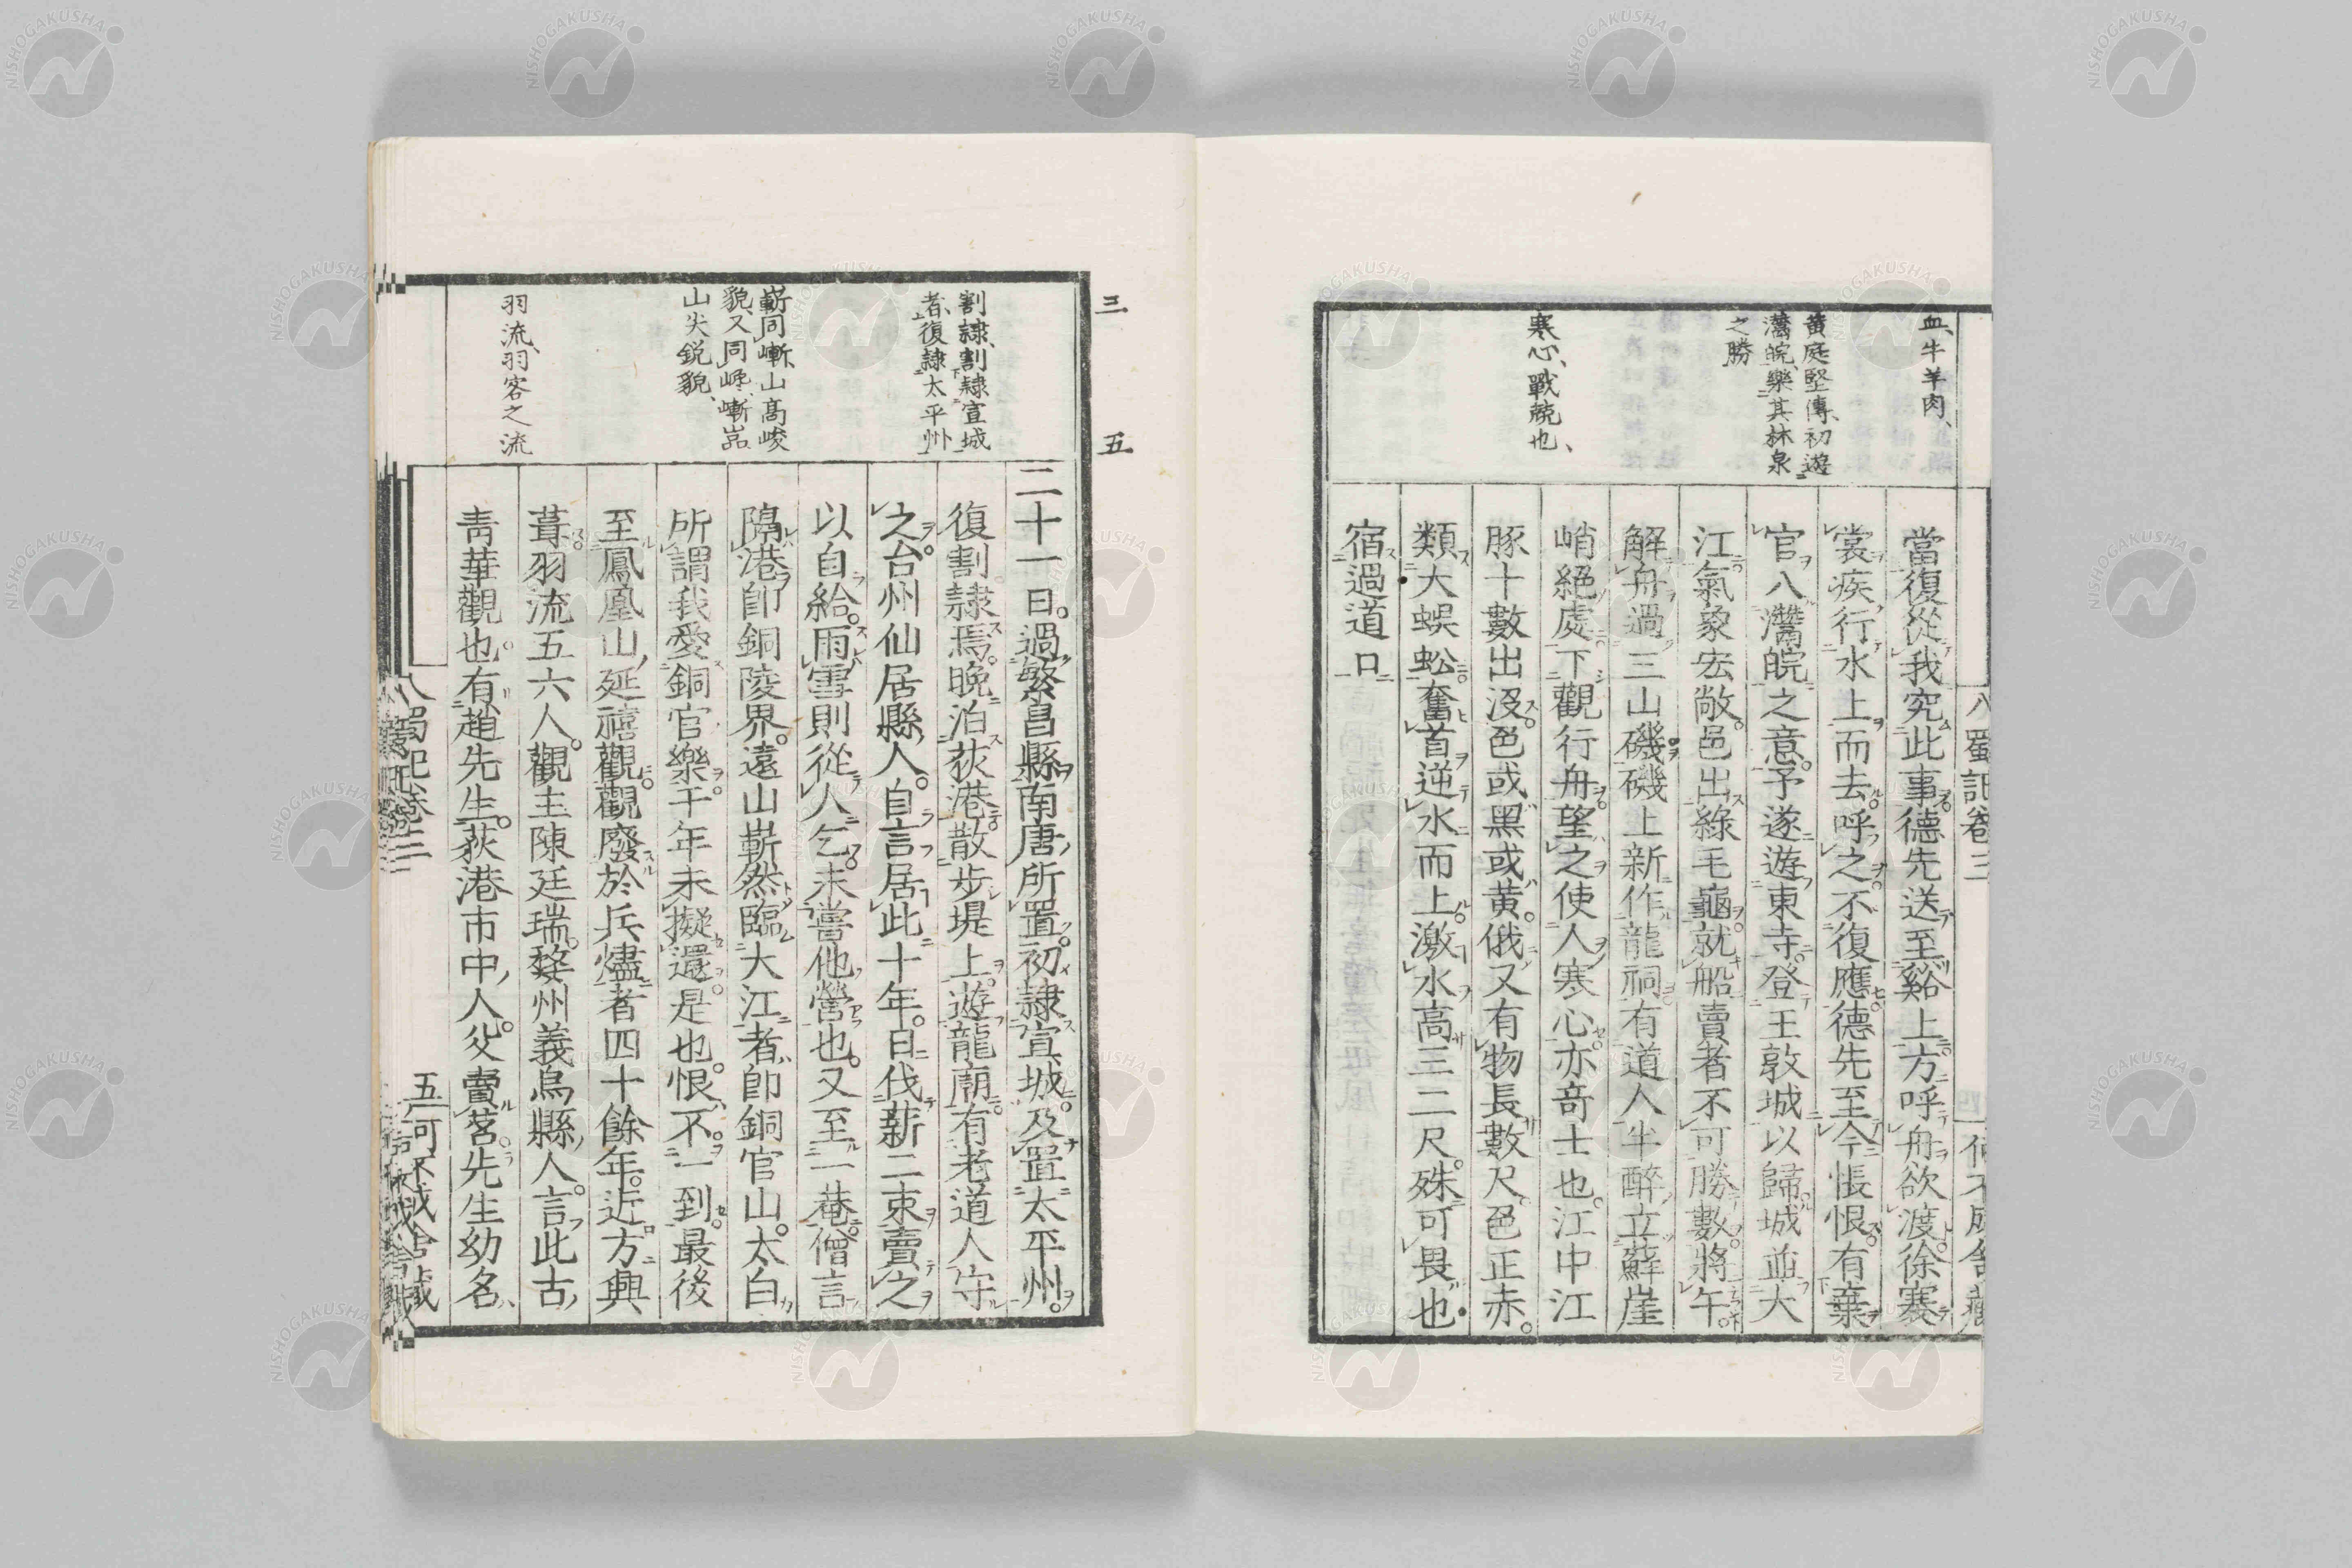 血、牛羊肉、
黄庭堅傳、初遊
灊皖、樂其林泉
之勝
寒心、戰兢也、
八蜀記卷三
當復從我究此事。德先送至谿上。方呼舟欲渡。徐褰
裳疾行水上而去。呼之。不復應。德先至今悵恨。有棄
官八灊皖之意。予遂遊東寺。登王敦城以歸。城並大
江氣象宏敞。邑出綠毛龜。就船賣者不可勝數。將午。
解舟過三山磯。磯上新作龍祠。有道人半醉立蘚崖
峭絕處。下觀行舟。望之使人寒心。亦奇士也。江中江
豚十數出沒。色或黑或黄。俄又有物長數尺。色正赤。
類大蜈蚣。奮首逆水而上。激水高三二尺。殊可畏也。
宿過道口
三
五
割隷、割隷宣城
者、復隷太平州
嶄同嶃、山高峻
貌、又同嶃、嶃嵓
山尖鋭貌、
羽流、羽客之流
二十一日。過繁昌縣。南唐所置。初隷宣城。及置太平州。
復割隷焉。晩泊荻港。散步堤上。遊龍廟。有老道人守
之。台州仙居縣人。自言居此十年。日伐薪二束賣之
以自給。雨雪則從人乞。未嘗他營也。又至一菴。僧言
隔港卽銅陵界。遠山嶄然臨大江者。卽銅官山。太白
所謂我愛銅官樂。千年未擬還。是也。恨不一到。最後
至鳳凰山延禧觀。觀廢於兵燼者四十餘年。近方興
葺。羽流五六人。觀主陳廷瑞。婺州義烏縣人。言此古
青華觀也。有趙先生。荻港市中人。父賣茗。先生幼名
八蜀記卷三
五 何不成舍藏